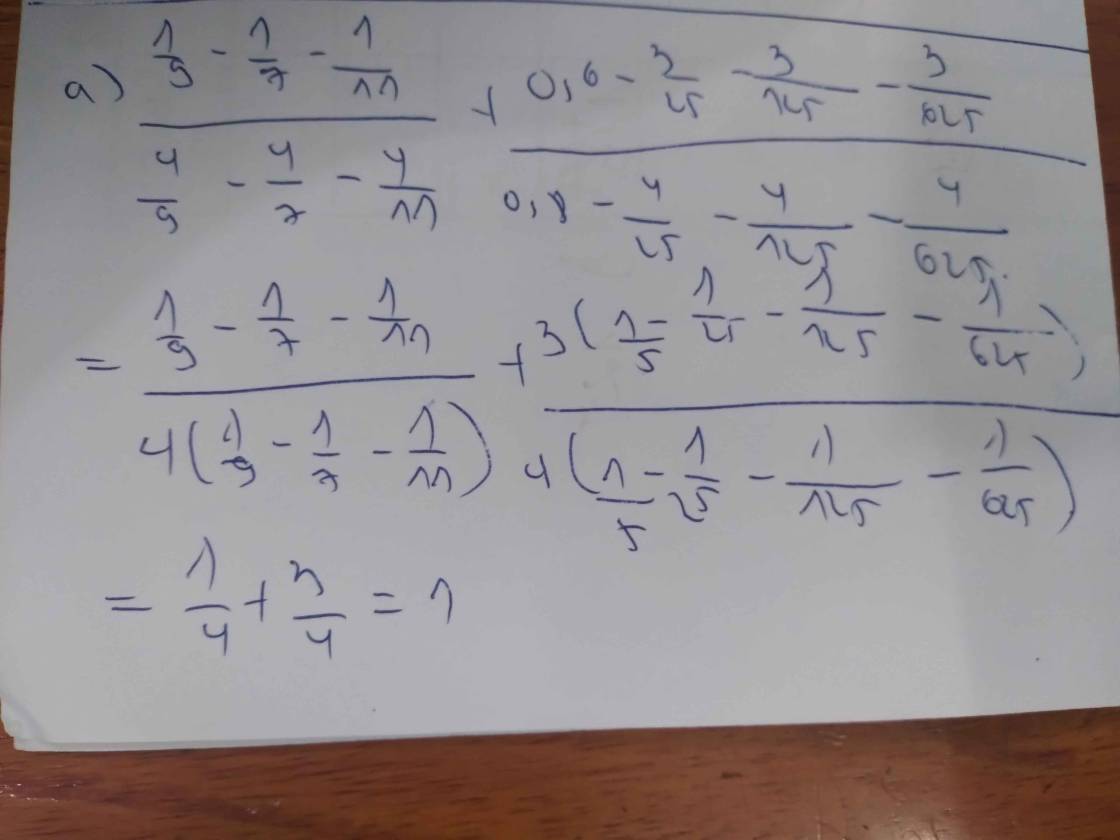 a) \frac{\frac{1}{9} - \frac{1}{7} - \frac{1}{11}}{\frac{4}{9} - \frac{4}{7} - \frac{4}{11}} + \frac{0,6 - \frac{3}{25} - \frac{3}{125} - \frac{3}{625}}{0,8 - \frac{4}{25} - \frac{4}{125} - \frac{4}{625}}
= \frac{\frac{1}{9} - \frac{1}{7} - \frac{1}{11}}{4(\frac{1}{9} - \frac{1}{7} - \frac{1}{11})} + \frac{3(\frac{1}{5} - \frac{1}{25} - \frac{1}{125} - \frac{1}{625})}{4(\frac{1}{5} - \frac{1}{25} - \frac{1}{125} - \frac{1}{625})}
= \frac{1}{4} + \frac{3}{4} = 1